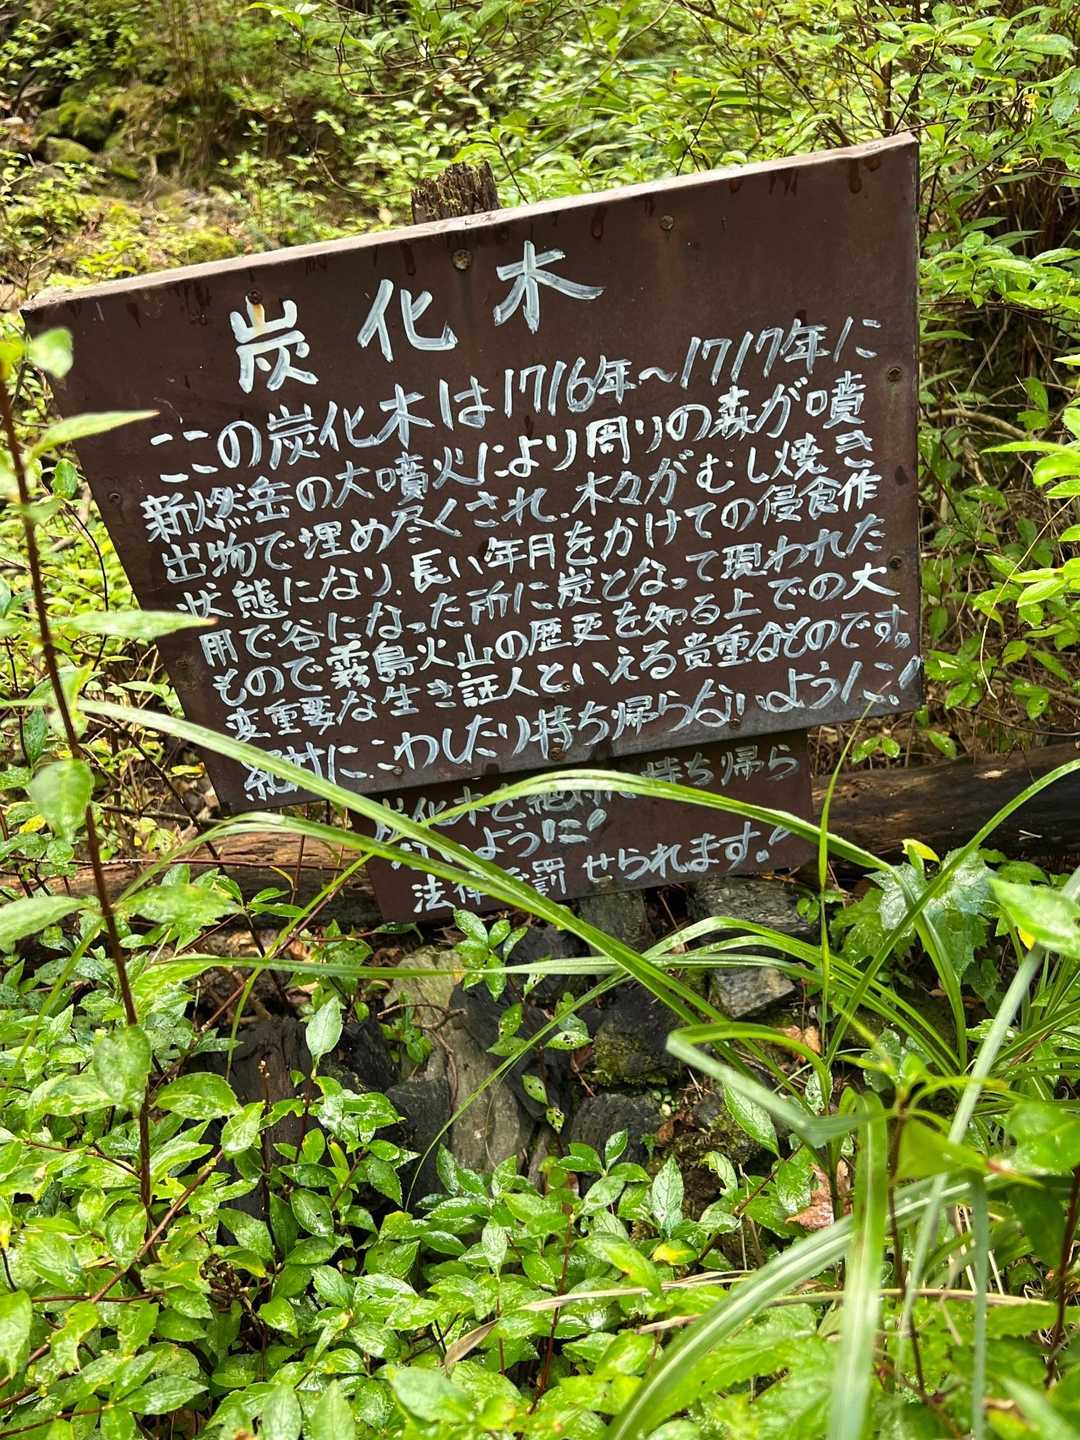 炭化木
この炭化木は1716年～1717年に
新燃岳の大噴火により周りの森が噴
出物で埋め尽くされ、木々がむし焼き
状態になり、長い年月をかけての侵食作
用で谷になった所に炭となって現われた
もので霧島火山の歴史を知る上での大
変重要な生き証人といえる貴重なものです。
絶対に、こわしたり持ち帰らないように!
炭化木を絶対に持ち帰ら
ないように!
法律で罰せられます。